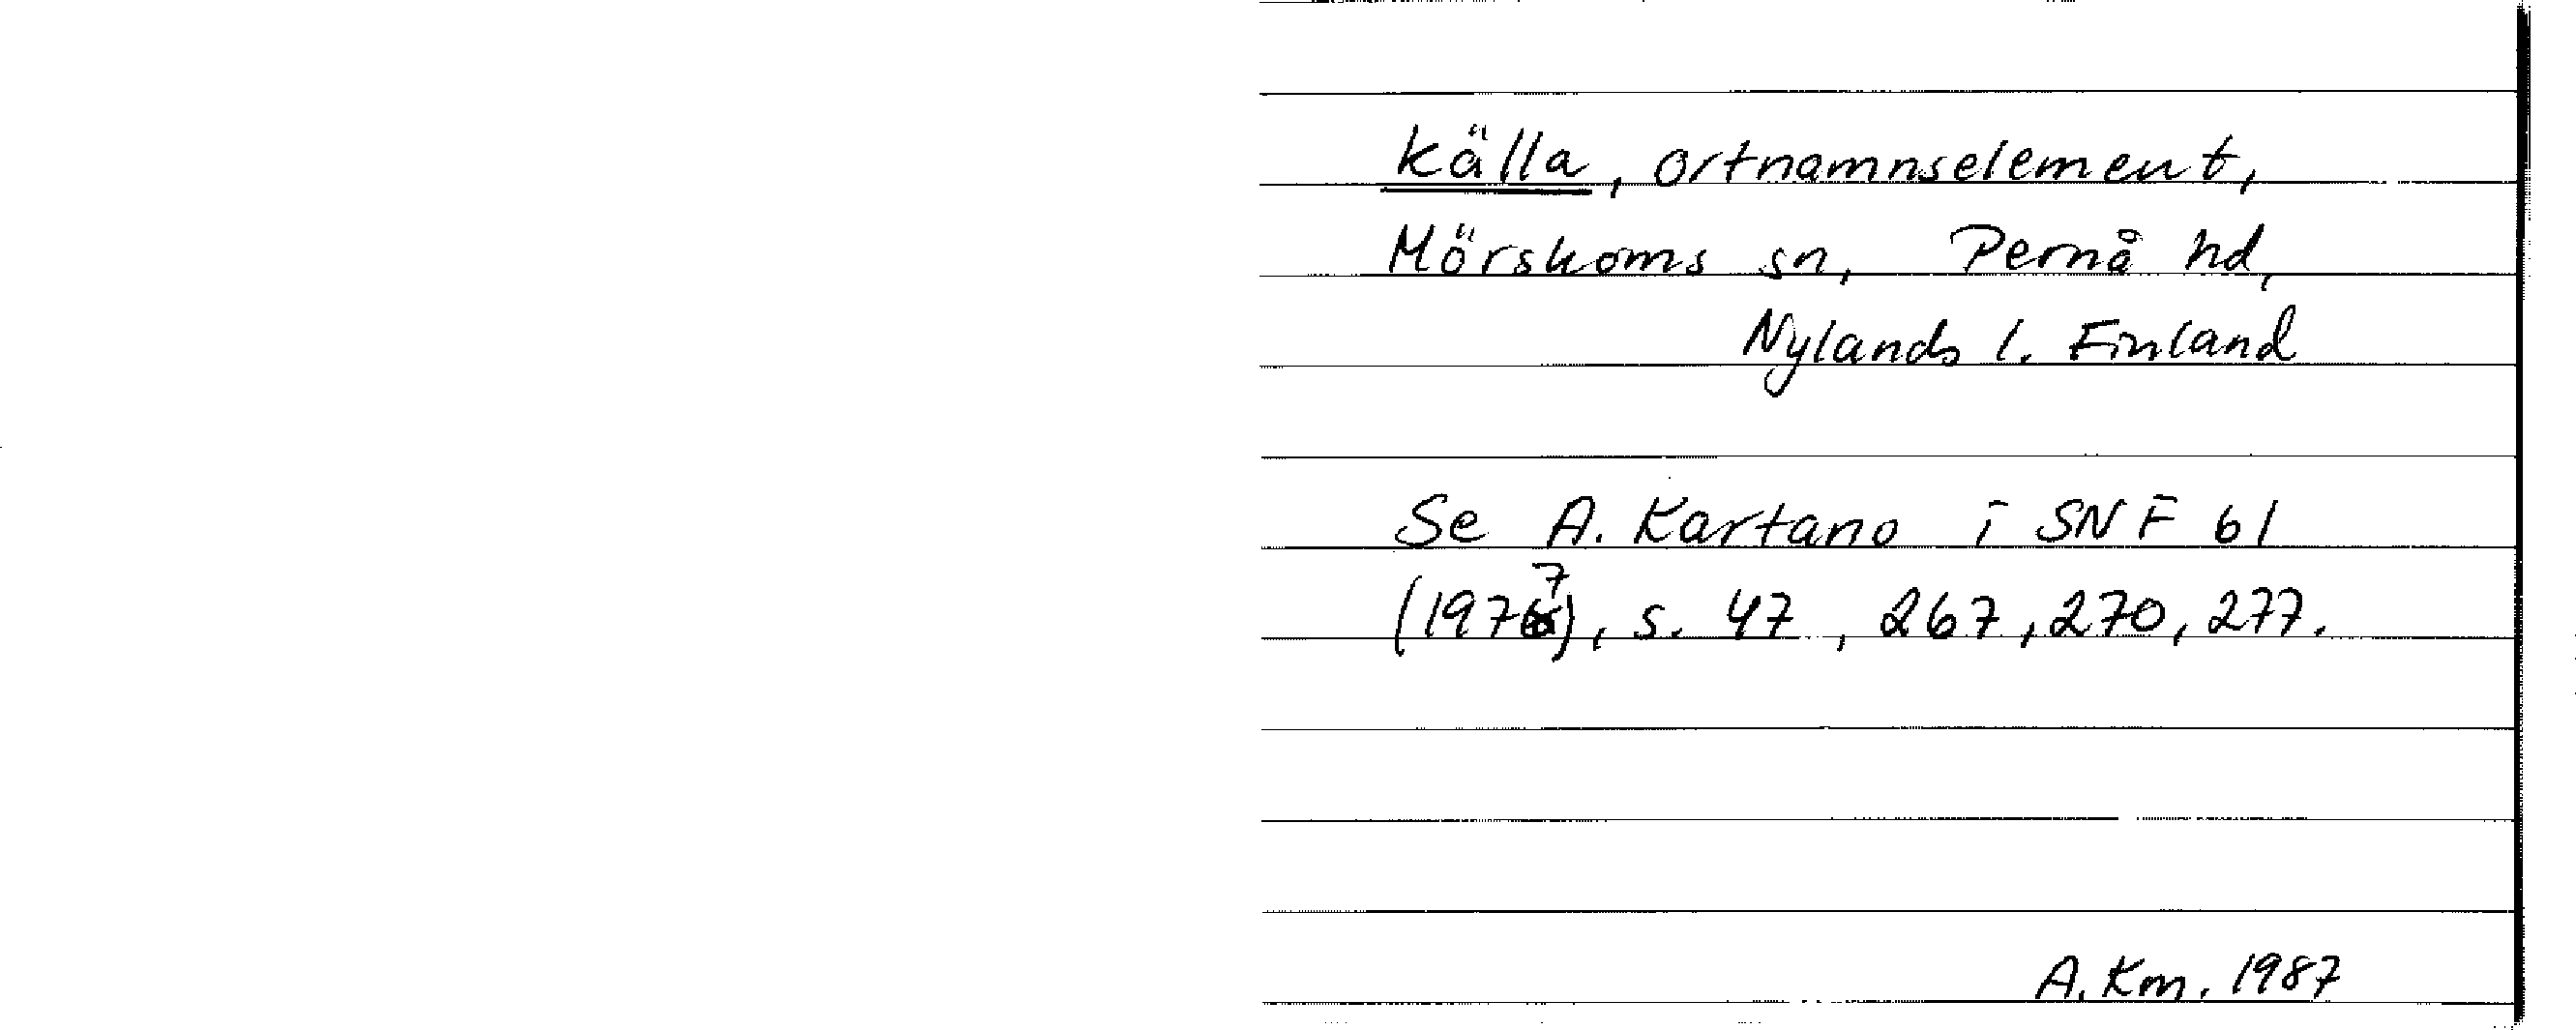 Källa, ortnamnselement,
Mörskoms sn, Pernå hd,
Nylands l. Finland
Se A. Kartano i SNF 61
(1977), s. 47, 267, 270, 277.
A. Km. 1987